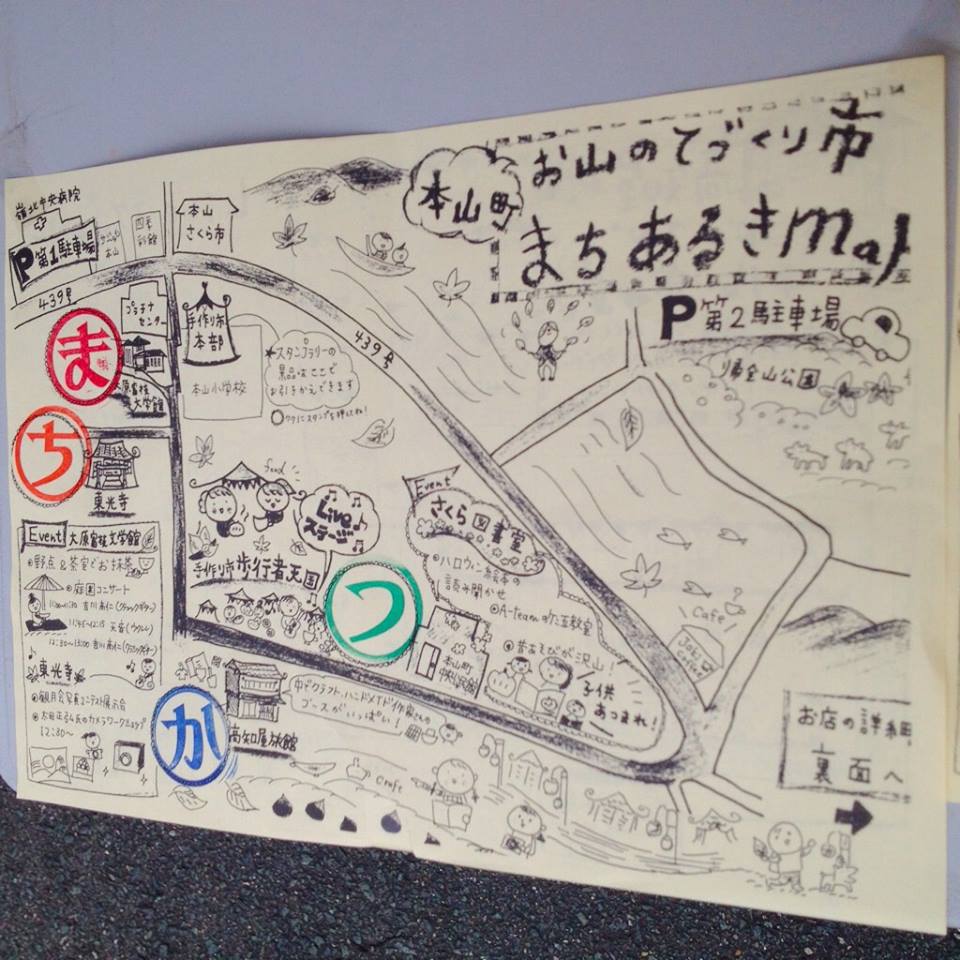 本山町
お山のてづくり市
まちあるきMap
嶺北中央病院
P第1駐車場
本山
さくら市
439号
プラチナ
センター
ま
大原富枝
文学館
手作り市
本部
本山小学校
★スタンプラリーの
景品はここで
お引きかえできます
439号
P第2駐車場
帰全山公園
ち
東光寺
food
Live♪
ステージ
手作り市歩行者天国
つ
Event
さくら図書室
ハロウィン絵本の
読み聞かせ
A-teamの
昔あそびが沢山!
子供
あつまれ!
本山町
中央公民館
Cafe
Coffee
Event 大原富枝文学館
野点&茶室でお抹茶
庭園コンサート
東光寺
観月会写真コンテスト展示会
太田正弘氏のカメラワークショップ
12:30〜
か
高知屋旅館
中でクラフト、ハンドメイド作家さんの
ブースがいっぱい!
Craft
お店の詳細
裏面へ